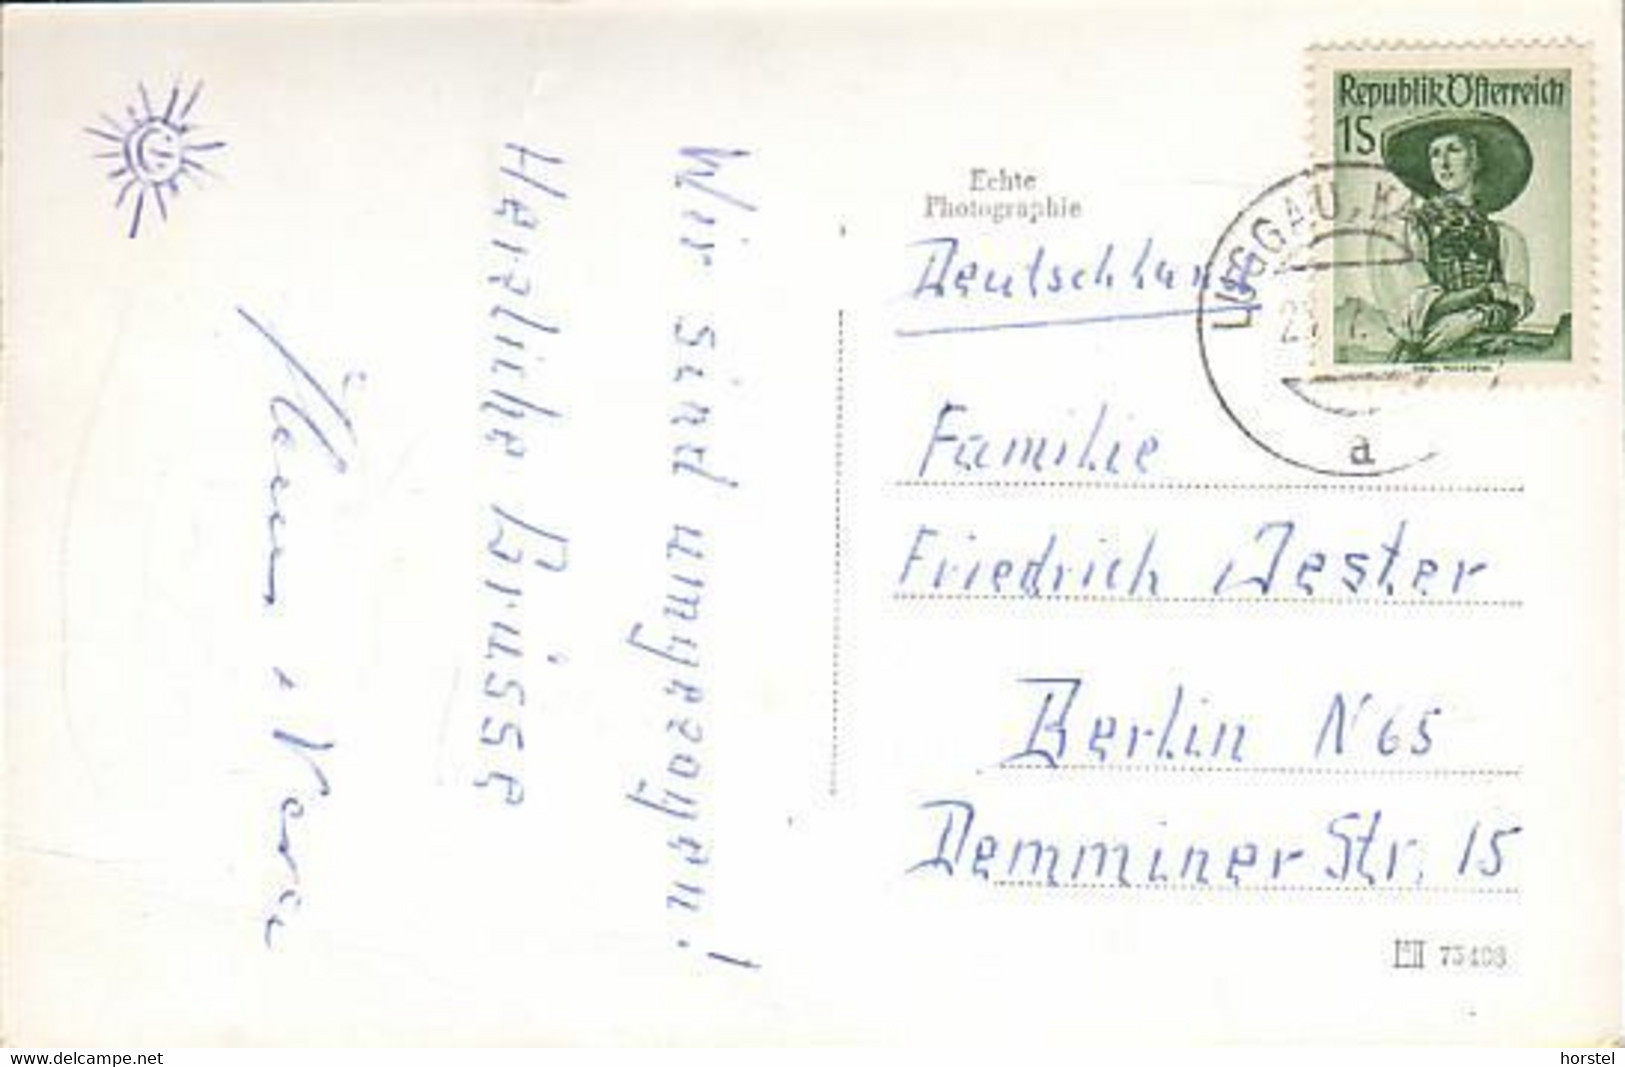 Wir sind umgezogen!
Herzliche Grüsse
Echte
Photographie
Republik Österreich
1S
LUGGAU, K
a
Deutschland
Familie
Friedrich Jester
Berlin N 65
Demminer Str. 15
75408
www.delcampe.net
horstel